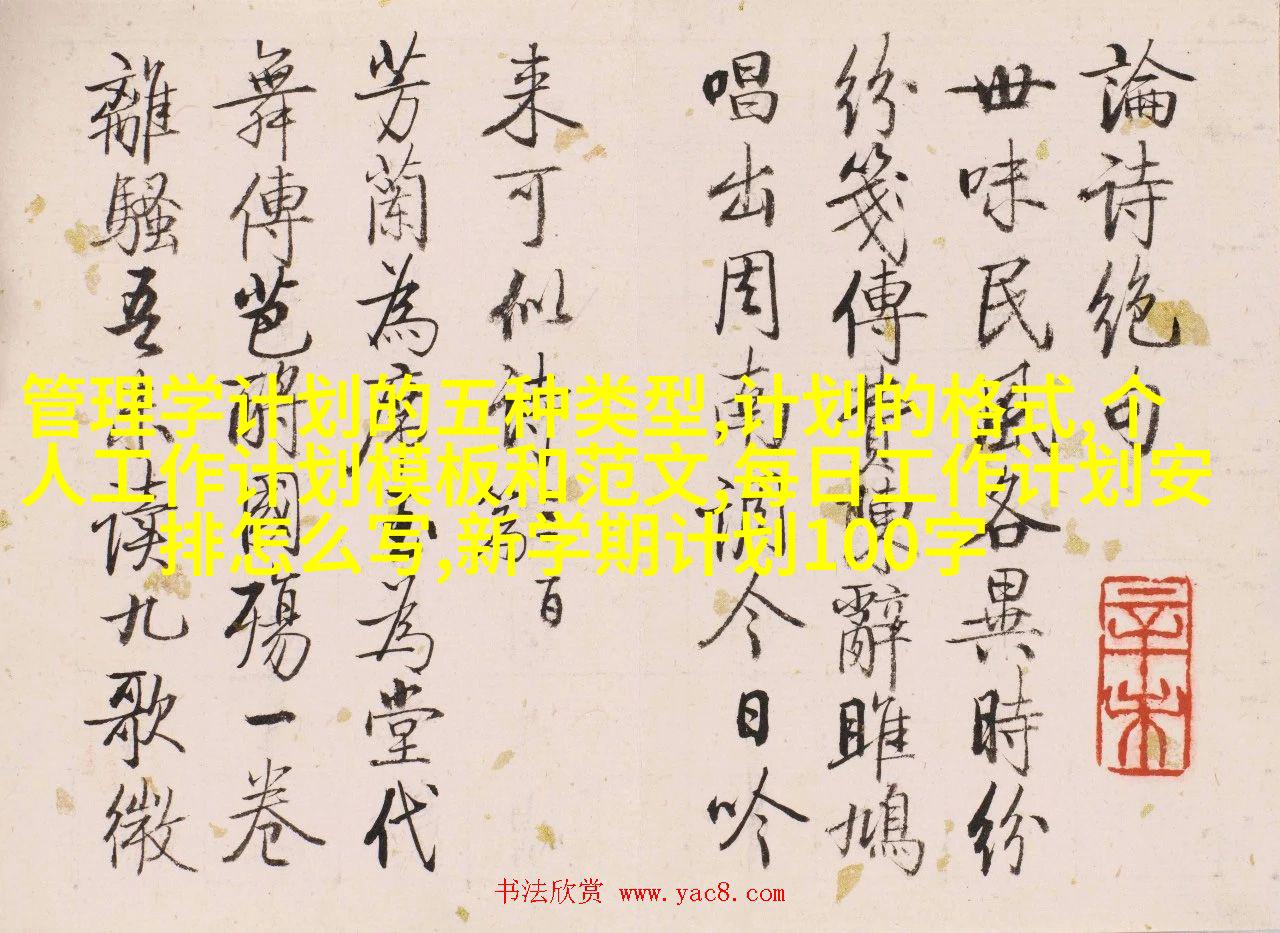 論詩絕句
世味民風各異時紛
紛箋傳辭雎鳩
唱出周南調今日吟
来可似詩
芳蘭為為堂代
舞傳芭國殤一卷
離騷吾讀九歌微
辛未
管理学计划的五种类型,计划的格式,个
人工作计划模板和范文,每日工作计划安
排怎么写,新学期计划100字
书法欣赏 www.yac8.com